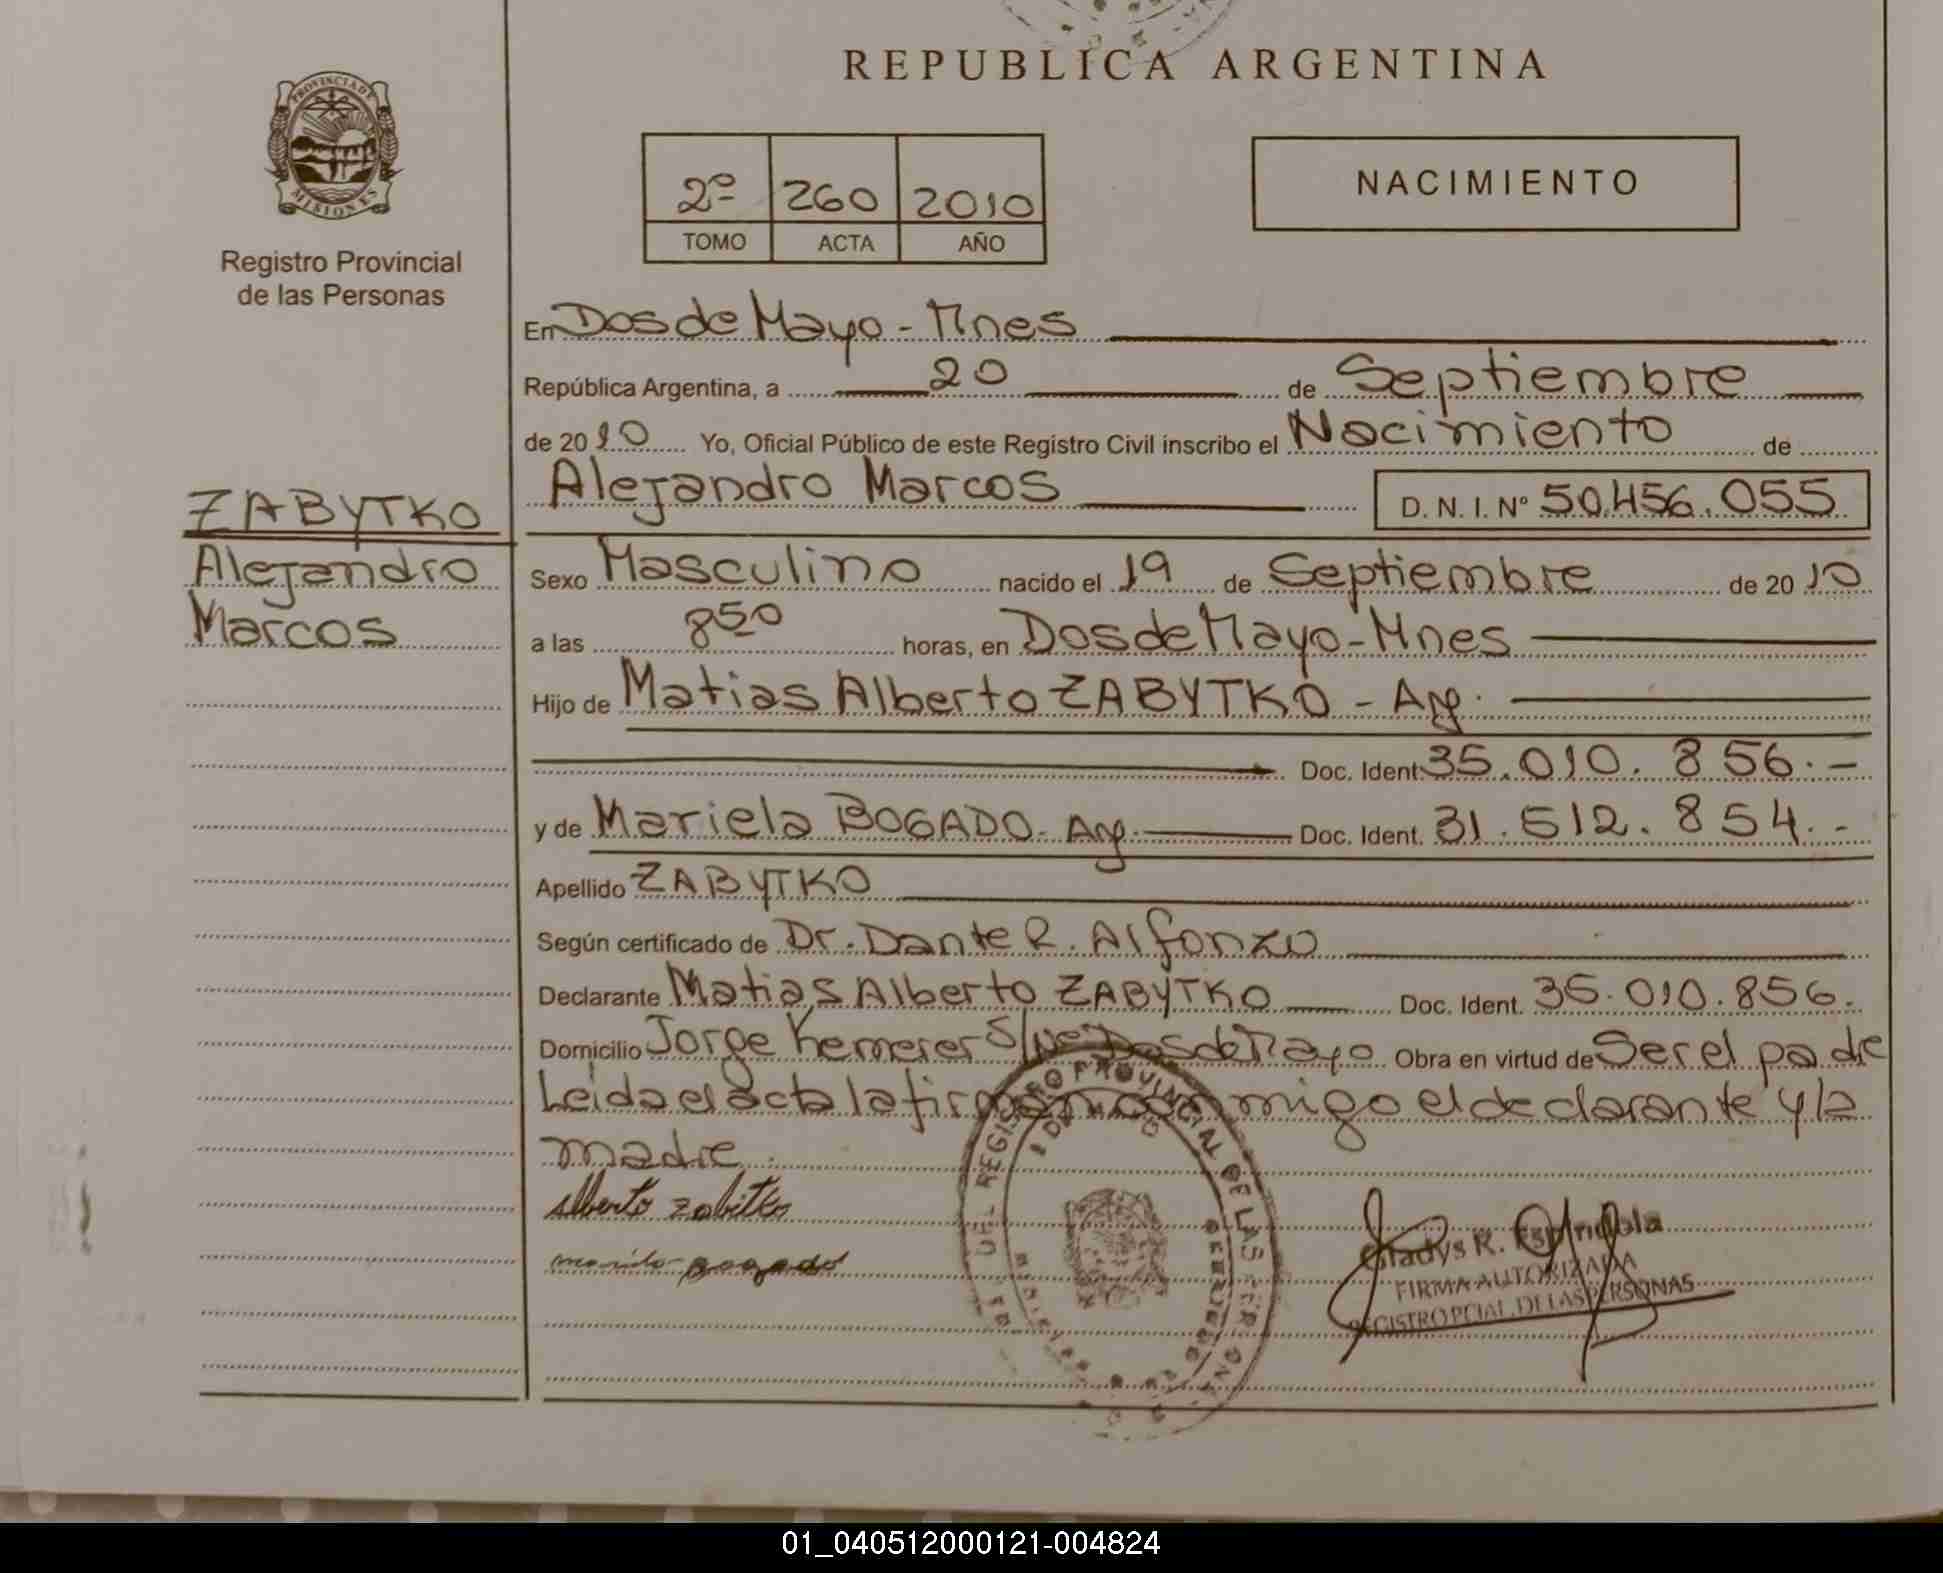 REPUBLICA ARGENTINA
PROVINCIA DE
MISIONES
Registro Provincial
de las Personas
2º 260 2010
TOMO ACTA AÑO
NACIMIENTO
En Dos de Mayo - Mnes
República Argentina, a 20 de Septiembre
de 2010 Yo, Oficial Público de este Registro Civil inscribo el Nacimiento de
Alejandro Marcos D. N. I. Nº 50.456.055
ZABYTKO
Alejandro
Marcos
Sexo Masculino nacido el 19 de Septiembre de 2010
a las 8:50 horas, en Dos de Mayo - Mnes
Hijo de Matias Alberto ZABYTKO - Arg.
Doc. Ident. 35.010.856.-
y de Mariela BOGADO. Arg. Doc. Ident. 31.512.854.-
Apellido ZABYTKO
Según certificado de Dr. Dante R. Alfonzo
Declarante Matias Alberto ZABYTKO Doc. Ident. 35.010.856.
Domicilio Jorge Kemerer S/Nº Dos de Mayo Obra en virtud de Ser el padre
Leida el acta la firman conmigo el declarante y la
madre.
Alberto Zabitko
mariela bogado
REGISTRO PROVINCIAL DE LAS
Gladys R. Espindola
FIRMA AUTORIZADA
REGISTRO PCIAL. DE LAS PERSONAS
01_040512000121-004824